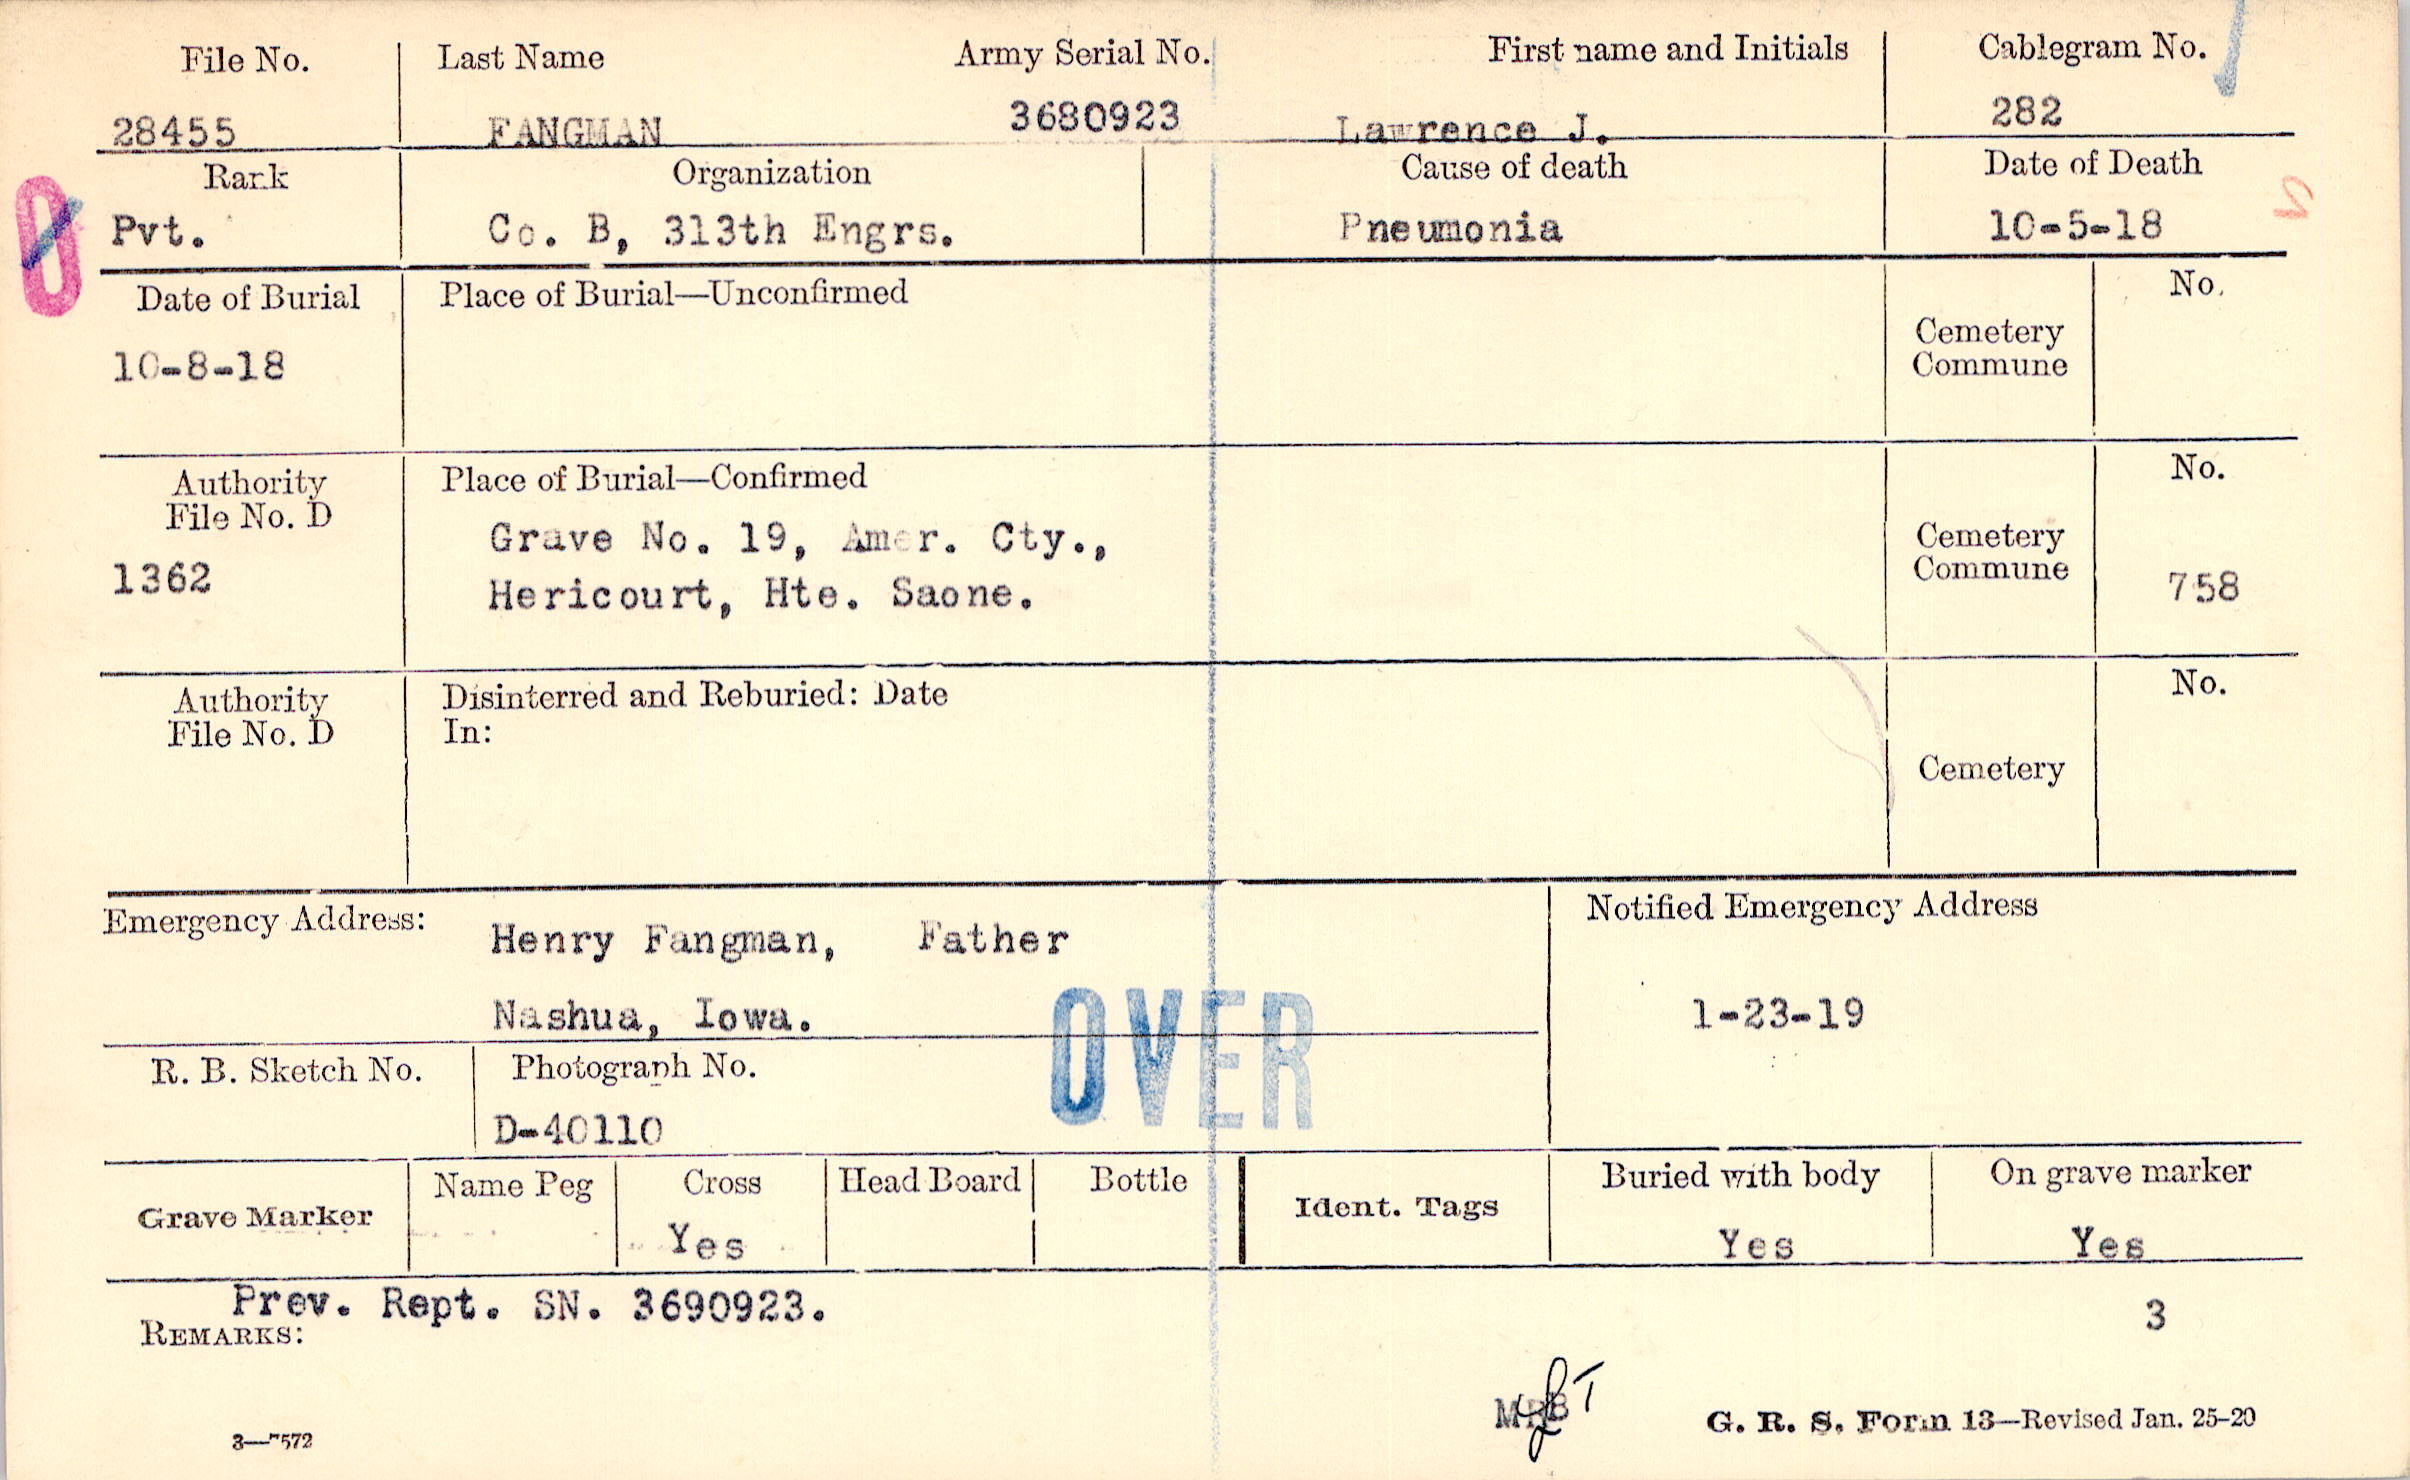 File No. Last Name Army Serial No. First name and Initials Cablegram No.
28455 FANGMAN 3680923 Lawrence J. 282
Rank Organization Cause of death Date of Death
Pvt. Co. B, 313th Engrs. Pneumonia 10-5-18
Date of Burial Place of Burial—Unconfirmed No.
10-8-18 Cemetery
Commune
Authority Place of Burial—Confirmed No.
File No. D
1362 Grave No. 19, Amer. Cty., Cemetery
Hericourt, Hte. Saone. Commune 758
Authority Disinterred and Reburied: Date No.
File No. D In:
Cemetery
Emergency Address: Henry Fangman, Father Notified Emergency Address
Nashua, Iowa. 1-23-19
OVER
R. B. Sketch No. Photograph No.
D-40110
Grave Marker Name Peg Cross Head Board Bottle Ident. Tags Buried with body On grave marker
Yes Yes Yes
Prev. Rept. SN. 3690923. 3
REMARKS:
3—7572 G. R. S. Form 13—Revised Jan. 25-20